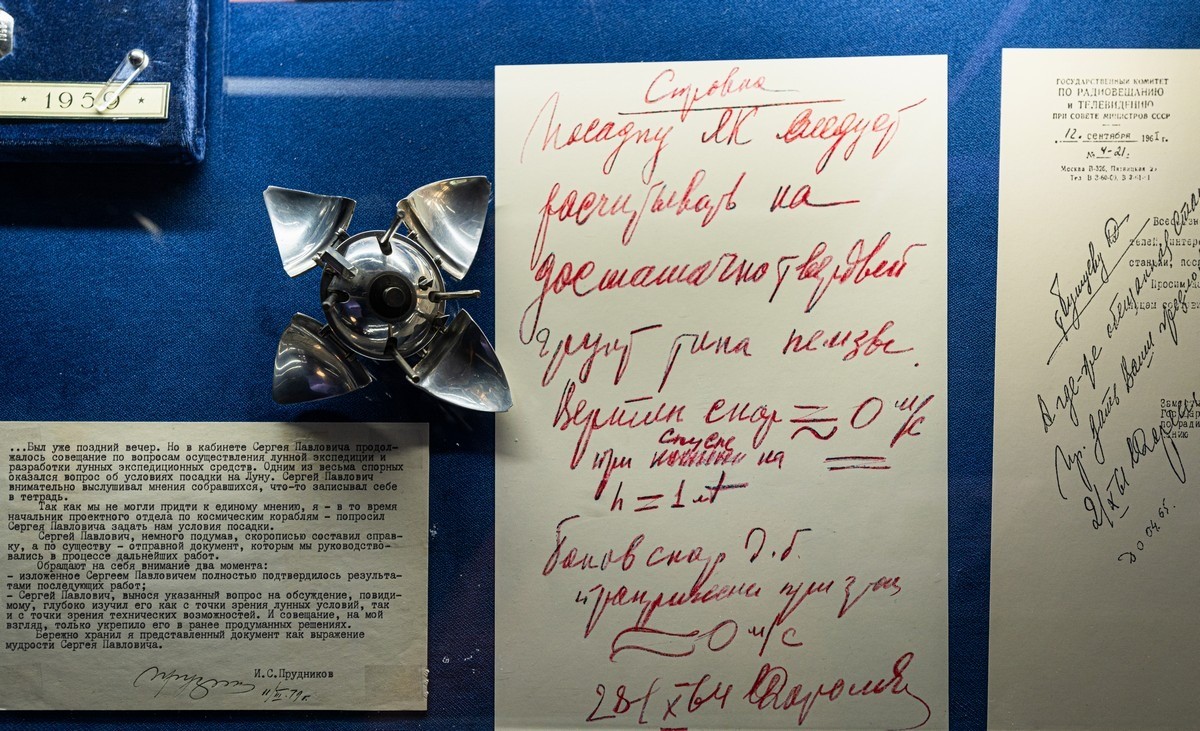 ★ 1959 ★
...Был уже поздний вечер. Но в кабинете Сергея Павловича продол-
жалось совещание по вопросам осуществления лунной экспедиции и
разработки лунных экспедиционных средств. Одним из весьма спорных
оказался вопрос об условиях посадки на Луну. Сергей Павлович
внимательно выслушивал мнения собравшихся, что-то записывал себе
в тетрадь.
Так как мы не могли придти к единому мнению, я - в то время
начальник проектного отдела по космическим кораблям - попросил
Сергея Павловича задать нам условия посадки.
Сергей Павлович, немного подумав, скорописью составил справ-
ку, а по существу - отправной документ, которым мы руководство-
вались в процессе дальнейших работ.
Обращают на себя внимание два момента:
- изложенное Сергеем Павловичем полностью подтвердилось результа-
тами последующих работ;
- Сергей Павлович, вынося указанный вопрос на обсуждение, повиди-
мому, глубоко изучил его как с точки зрения лунных условий, так
и с точки зрения технических возможностей. И совещание, на мой
взгляд, только укрепило его в ранее продуманных решениях.
Бережно хранил я представленный документ как выражение
мудрости Сергея Павловича.
И.С.Прудников
Справка
Посадку ЛК следует
расчитывать на
достаточно твердый
грунт типа пемзы.
Вертик скор ≈ 0 м/с
при спуске на
h = 1 м
Боков скор д.б.
≈ 0 м/с
28/X 64 Королев
ГОСУДАРСТВЕННЫЙ КОМИТЕТ
ПО РАДИОВЕЩАНИЮ
и ТЕЛЕВИДЕНИЮ
ПРИ СОВЕТЕ МИНИСТРОВ СССР
12 сентября 1961 г.
№ 4-21
Москва Пятницкая
Бушуеву
А где-же обещанная
дать Ваши